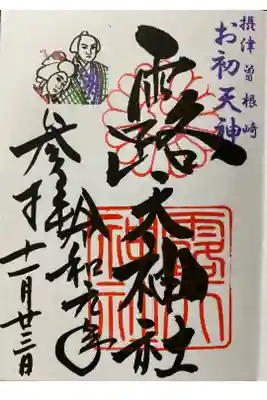 摂津曽根崎
お初天神
露天神社
令和元年
参拝
十一月廿三日
露天
神社